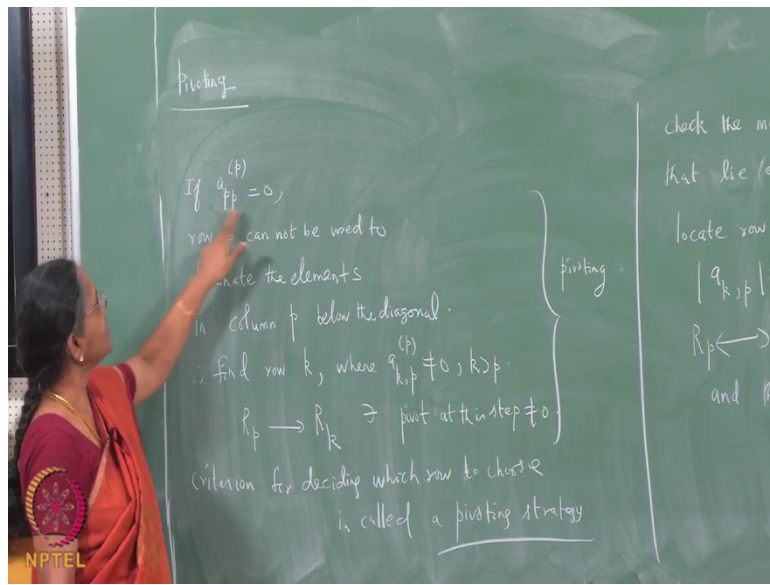 Pivoting
If a_pp^(p) = 0,
row can not be used to
the elements
in column p below the diagonal.
∴ find row k, where a_k,p^(p) ≠ 0, k > p.
R_p ⟶ R_k ∋ pivot at this step ≠ 0.
pivoting
criterion for deciding which row to choose
is called a pivoting strategy
check the
that lie
locate row
| a_k,p |
R_p ⟷
and
NPTEL